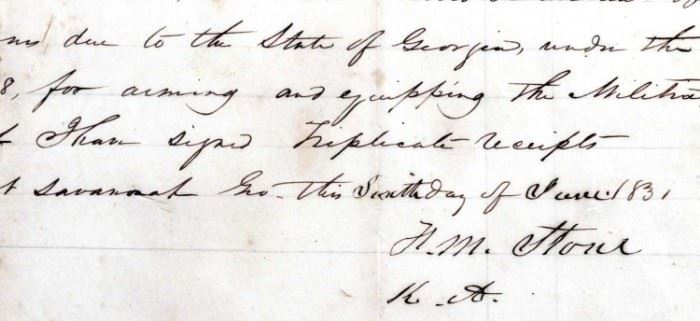 ms due to the State of Georgia, under the
8, for arming and equipping the Militia
I have signed Triplicate receipts
t Savannah Geo. this Sixth day of June 1831
H. M. Stone
K. A.